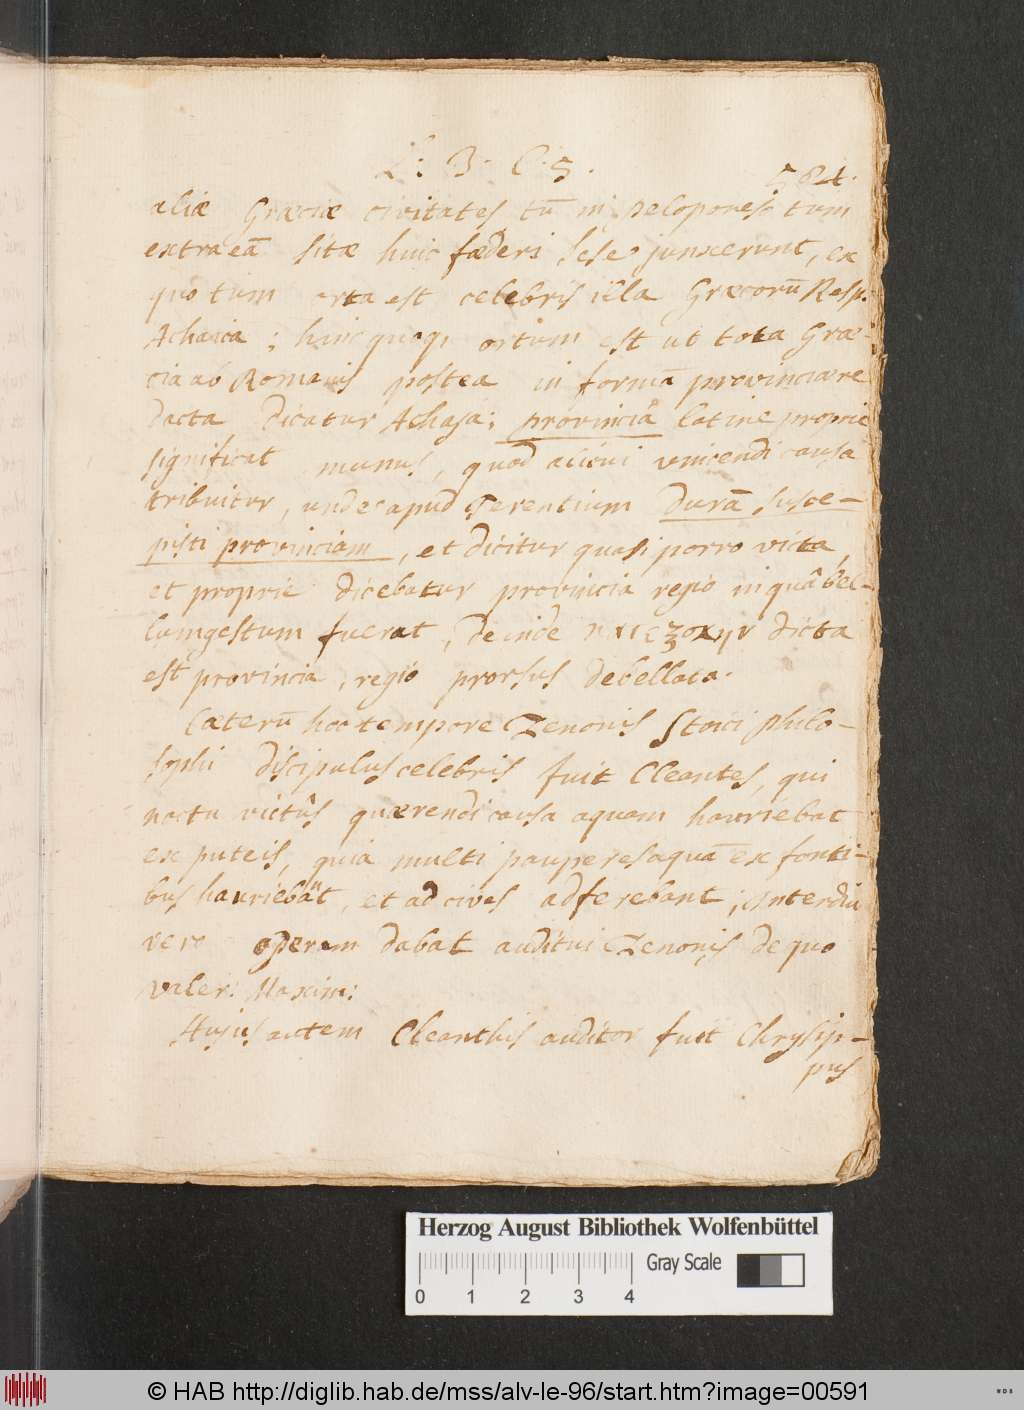 L. 3. C. 5.
584.
aliæ Græciæ civitates tũ in Peloponeso tum
extra eã sitæ huic fæderi sese junxerunt, ex
quo tum orta est celebris illa Græcorũ Resp.
Achaica ; hinc quoq; ortum est ut tota Græ-
cia ab Romanis postea in formã provinciæ re
dacta dicatur Achaja; provincia latine proprie
significat munus, quod alicui vincendi causa
tribuitur, unde apud Terentium durã susce-
pisti provinciam, et dicitur quasi porro victa,
et proprie dicebatur provincia regio in quâ bel-
lum gestum fuerat, deinde dicta
est provincia, regio prorsus debellata.
Cæterũ hoc tempore Zenonis Stoici philo-
sophi discipulus celebris fuit Cleantes, qui
noctu victûs quærendi causa aquam hauriebat
ex puteis, quia multi pauperes aquã ex fonti-
bus hauriebãt, et ad cives adferebant; interdiu
vero operam dabat auditui Zenonis de quo
Valer: Maxim:
Hujus autem Cleanthis auditor fuit Chrysip-
pus
Herzog August Bibliothek Wolfenbüttel
Gray Scale
0 1 2 3 4
© HAB http://diglib.hab.de/mss/alv-le-96/start.htm?image=00591